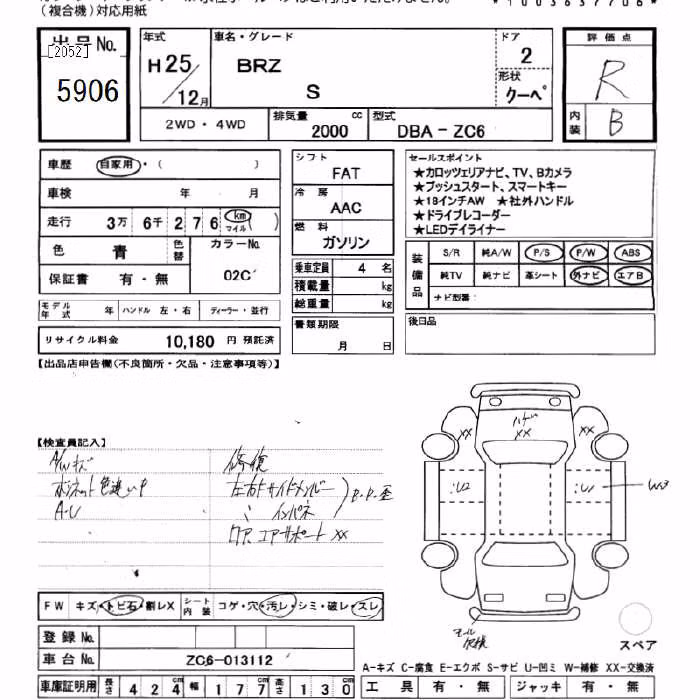 (複合機)対応用紙
*1003637706*
出品No.
[2052]
5906
年式
H25/12月
車名・グレード
BRZ
S
ドア
2
形状
クーペ
評価点
R
内装
B
2WD・4WD
排気量
2000 cc
型式
DBA-ZC6
車歴 自家用・( )
車検 年 月
走行 3万 6千 2 7 6 km マイル
色 青 色替 カラーNo. 02C
保証書 有・無
モデル年式 年 ハンドル 左・右 ディーラー・並行
リサイクル料金 10,180 円 預託済
シフト
FAT
冷房
AAC
燃料
ガソリン
乗車定員 4 名
積載量 kg
総重量 kg
書類期限
月 日
セールスポイント
★カロッツェリアナビ、TV、Bカメラ
★プッシュスタート、スマートキー
★18インチAW ★社外ハンドル
★ドライブレコーダー
★LEDデイライナー
装備品
S/R 純A/W P/S P/W ABS
純TV 純ナビ 革シート 外ナビ エアB
ナビ型番:
後日品
【出品店申告欄(不良箇所・欠品・注意事項等)】
【検査員記入】
A/Wキズ
ボンネット色違い
A-U
修復
左右トサイドメンバー
インパネ
エアサポート XX
XX
XX
XX
U2
U1
W3
FW キズ・トビ石・割レX シート内装 コゲ・穴・汚レ・シミ・破レ・スレ
登録No.
車台No. ZC6-013112
車庫証明用 長さ 424 cm 幅 177 cm 高さ 130 cm
スペア
A-キズ C-腐食 E-エクボ S-サビ U-凹ミ W-補修 XX-交換済
工具 有・無 ジャッキ 有・無